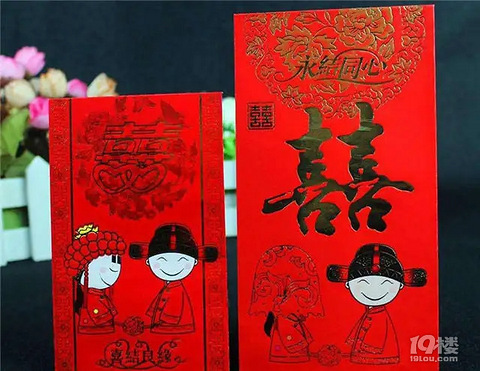 囍
喜结良缘
永结同心
囍
囍
19楼
19lou.com